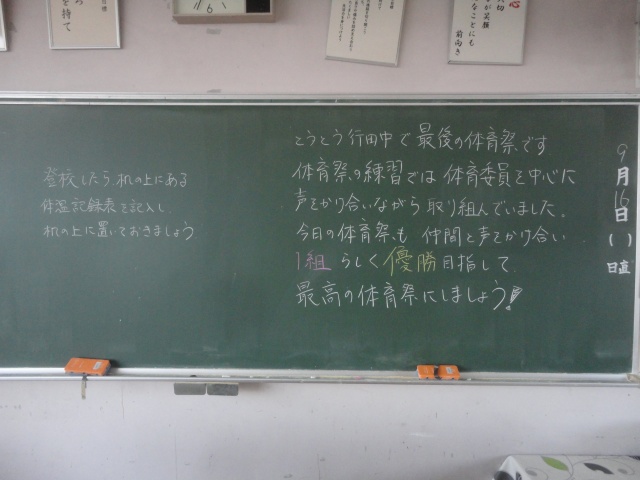 登校したら、机の上にある
体温記録表を記入し、
机の上に置いておきましょう
とうとう行田中で最後の体育祭です
体育祭の練習では体育委員を中心に
声をかけ合いながら取り組んでいました。
今日の体育祭も仲間と声をかけ合い
1組らしく優勝目指して、
最高の体育祭にしましょう!
9月16日( )
日直
を持て
前向き